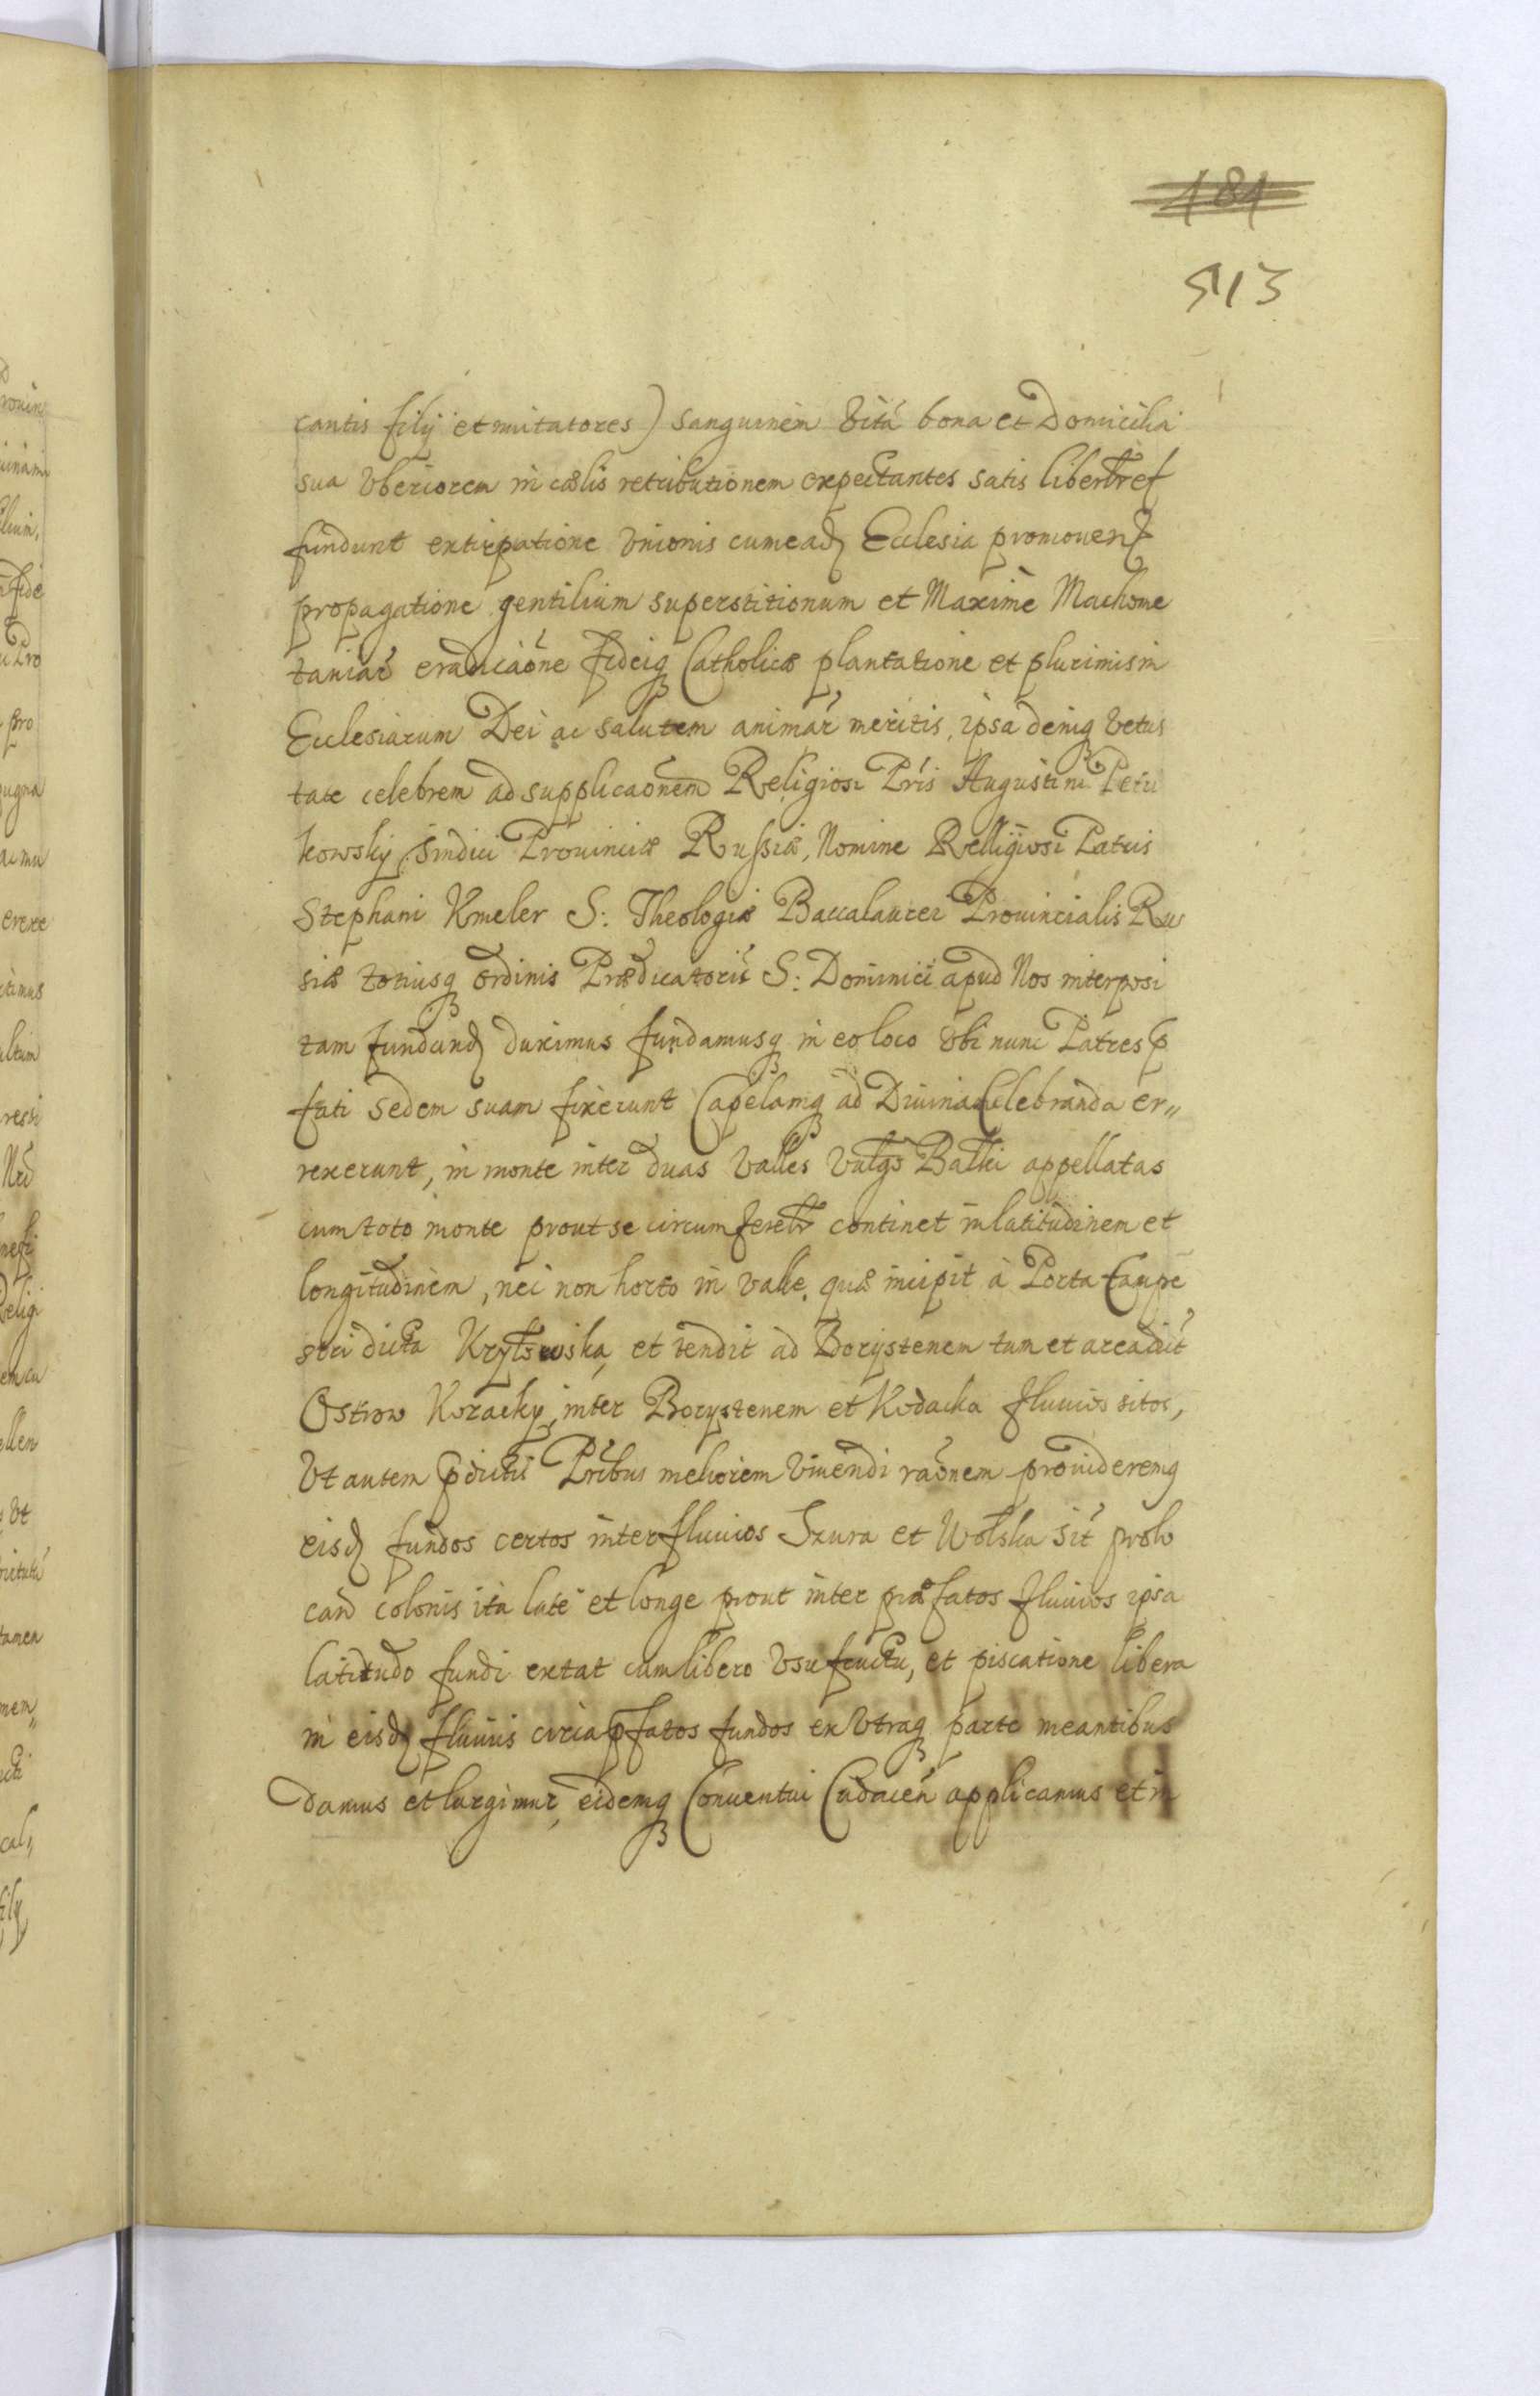 181
513
cantis filij et imitatores) sanguinem vitā bona et Domicilia
sua vberiorem in cælis retributionem expectantes satis libentr ef
fundunt extirpatione vnionis cum eadꝫ Ecclesia promouen
propagatione gentilium superstitionum et Maximè Machome
taniar̄ eradicaōne fideiqꝫ Catholicæ plantatione et plurimis in
Ecclesiarum Dei ac salutem animar̄ meritis, ipsa deniqꝫ vetus
tate celebrem ad supplicaōnem Religiosi Pris Augustini
kowsky Sindici Prouinciæ Russiæ, Nomine Relligiosi Patris
Stephani Kmeler S: Theologiæ Baccalaurei Prouincialis Rus
siæ totiusqꝫ ordinis Prædicatorū S: Dominici apud Nos interposi
tam fundandꝫ duximus fundamusqꝫ in eo loco vbi nunc Patres p
fati sedem suam fixerunt Capelamqꝫ ad Diuina Celebranda er„
rexerunt, in monte inter duas valles vulgo Balki appellatas
cum toto monte prout se circumferetr continet in latitudinem et
longitudinem, nec non horto in valle, quæ incipit à Porta Campe
stri dicta Krylowska, et tendit ad Borystenem tum et area dict
Ostrow Kozacky, inter Borystenem et Kodacka fluuios sitos,
Vt autem pdictis Pribus meliorem viuendi raōnem prouideremqꝫ
eisdꝫ fundos certos inter fluuios Szura et Wolska sit pro lo
cand colonis ita latè et longe prout inter præfatos fluuios ipsa
latitudo fundi extat cum libero vsufructu, et piscatione libera
in eisdꝫ fluuiis circa pfatos fundos ex vtraqꝫ parte meantibus
damus et largimur, eidemqꝫ Conuentui Cudacen̄ applicamus et in